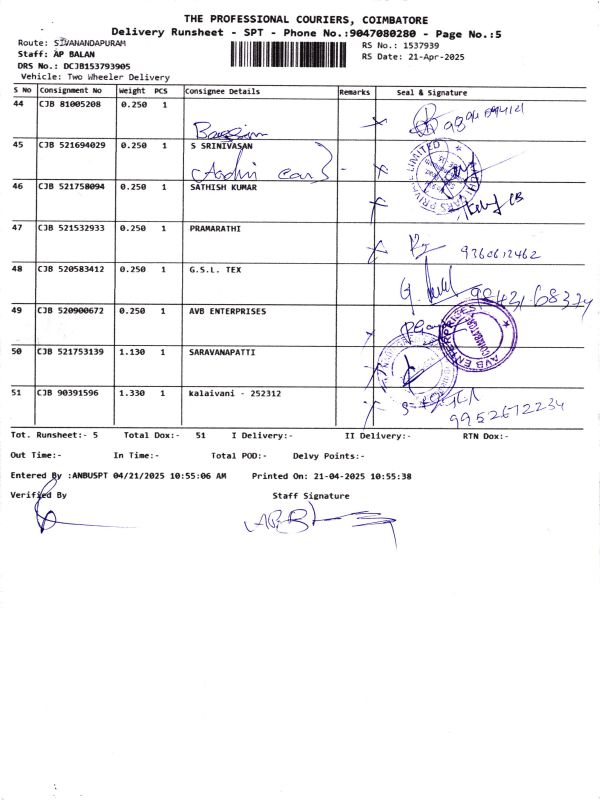 THE PROFESSIONAL COURIERS, COIMBATORE
Delivery Runsheet - SPT - Phone No.:9047080280 - Page No.:5
Route: SIVANANDAPURAM
RS No.: 1537939
Staff: AP BALAN
RS Date: 21-Apr-2025
DRS No.: DCJB153793905
Vehicle: Two Wheeler Delivery
S No Consignment No Weight PCS Consignee Details Remarks Seal & Signature
44 CJB 81005208 0.250 1
45 CJB 521694029 0.250 1 S SRINIVASAN
Aadhi cars
46 CJB 521758094 0.250 1 SATHISH KUMAR
47 CJB 521532933 0.250 1 PRAMARATHI
9360612462
48 CJB 520583412 0.250 1 G.S.L. TEX
49 CJB 520900672 0.250 1 AVB ENTERPRISES
AVB ENTERPRISES
COIMBATORE
50 CJB 521753139 1.130 1 SARAVANAPATTI
51 CJB 90391596 1.330 1 kalaivani - 252312
9952672234
Tot. Runsheet:- 5 Total Dox:- 51 I Delivery:- II Delivery:- RTN Dox:-
Out Time:- In Time:- Total POD:- Delvy Points:-
Entered By :ANBUSPT 04/21/2025 10:55:06 AM Printed On: 21-04-2025 10:55:38
Verified By Staff Signature